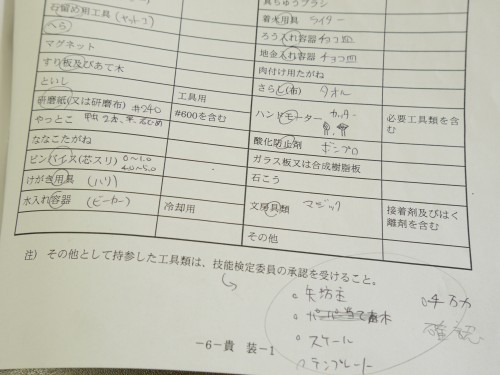 石留め用工具 (ヤットコ)
へら
マグネット
すり板及びあて木
といし
研磨紙(又は研磨布) #240 工具用 #600を含む
やっとこ
ななこたがね
ピンバイス(芯スリ) 0~1.0
けがき用具 (ハリ)
水入れ容器 (ビーカー) 冷却用
真ちゅうブラシ
着火用具 ライター
ろう入れ容器 チョコ皿
地金入れ容器 チョコ皿
肉付け用たがね
さらし(布) タオル
ハンドモーター カッター 必要工具類を含む
酸化防止剤 ボンプロ
ガラス板又は合成樹脂板
石こう
文房具類 マジック 接着剤及びはく離剤を含む
その他
注) その他として持参した工具類は、技能検定委員の承認を受けること。
矢坊主
スケール
テンプレート
確認
-6-貴 装-1